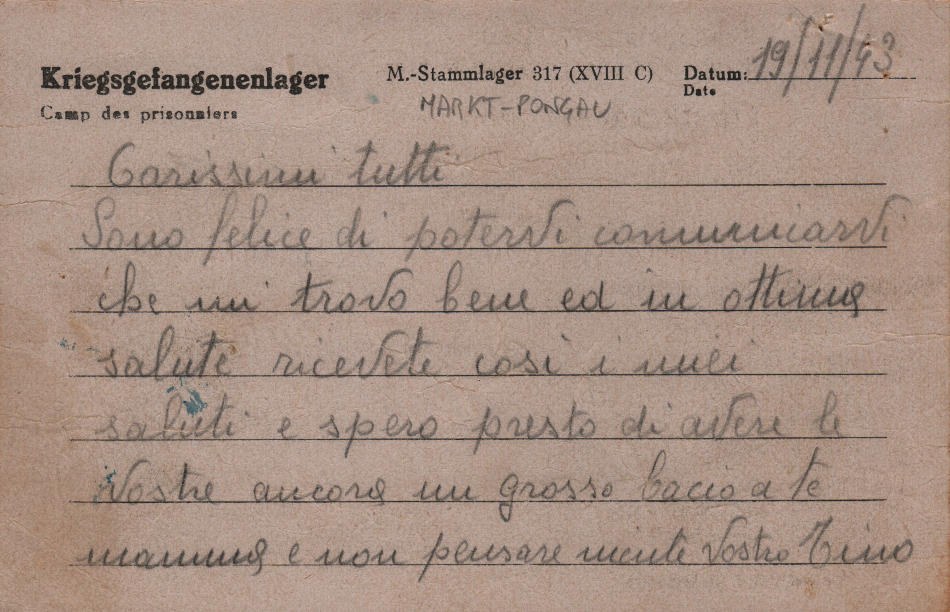 Kriegsgefangenenlager M.-Stammlager 317 (XVIII C) Datum: 19/11/43
Camp des prisonniers MARKT-PONGAU Date
Carissimi tutti
Sono felice di potervi comunicarvi
che mi trovo bene ed in ottima
salute ricevete così i miei
saluti e spero presto di avere le
vostre ancora un grosso bacio a te
mamma e non pensare niente vostro Tino